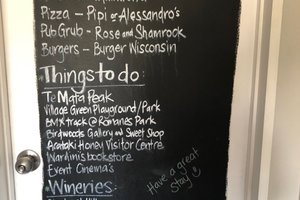 Pizza – Pipi or Alessandro's
Pub Grub – Rose and Shamrock
Burgers – Burger Wisconsin
Things to do:
Te Mata Peak
Village Green Playground/Park
BMX track @ Romanes Park
Birdwoods Gallery and Sweet Shop
Arataki Honey Visitor Centre
Wardini's bookstore
Event Cinema's
Wineries:
Have a great
Stay!